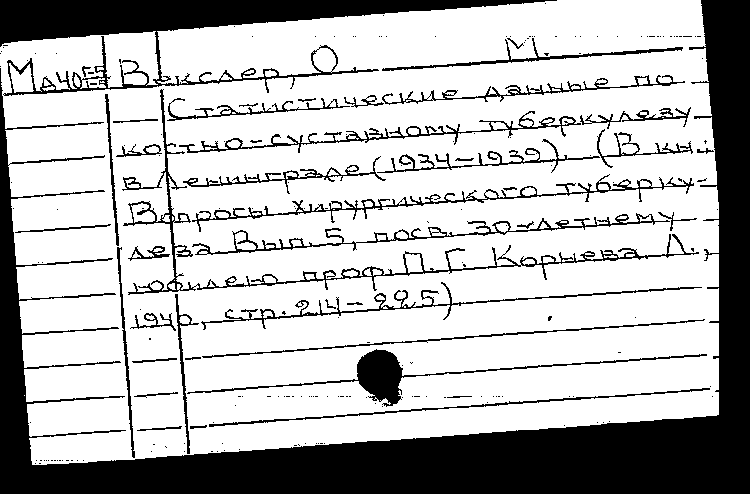 Векслер, О. М.
Статистические данные по
костно-суставному туберкулезу
в Ленинграде (1934-1939). (В кн.:
Вопросы хирургического туберку-
леза Вып. 5, посв. 30-летнему
юбилею проф. П. Г. Корнева Л.,
1940, стр. 214-225)